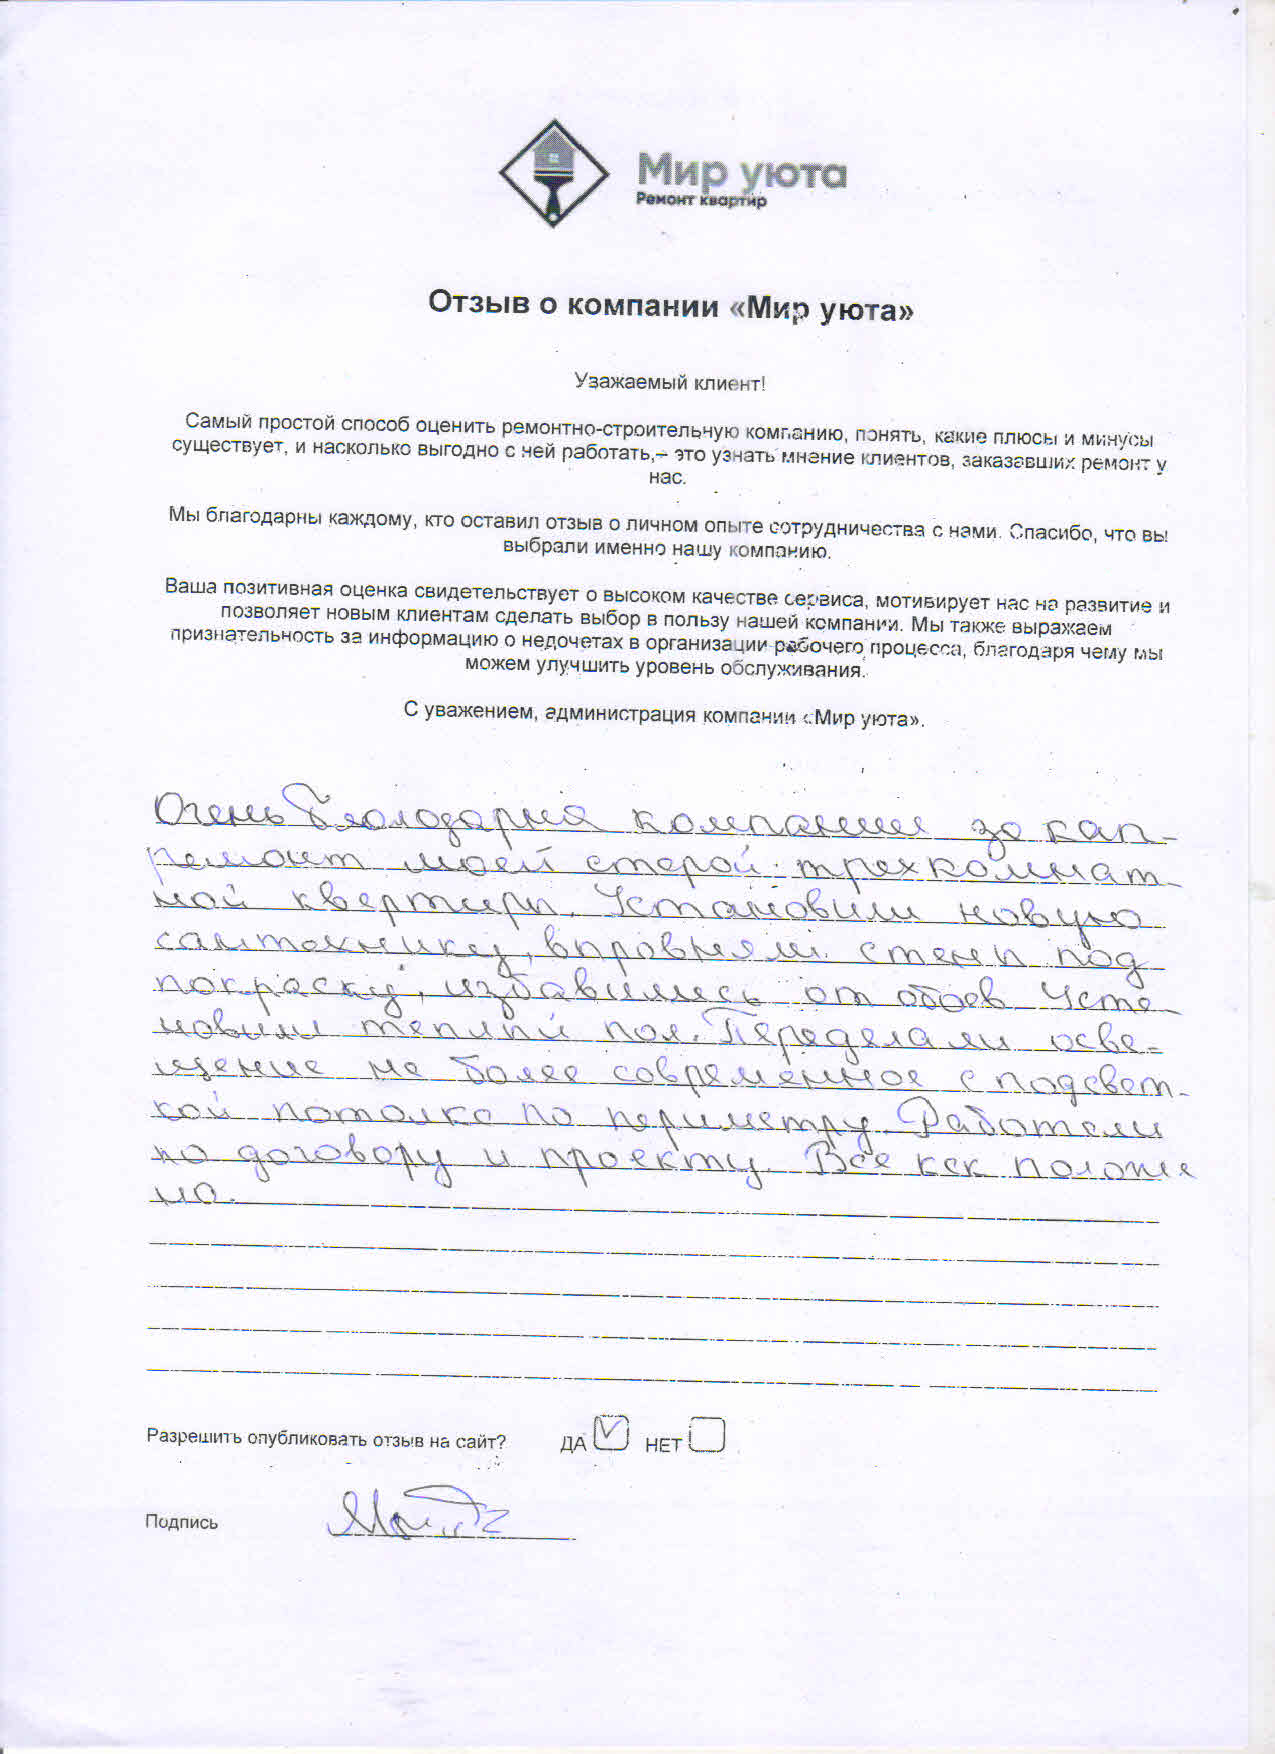 Мир уюта
Ремонт квартир
Отзыв о компании «Мир уюта»
Уважаемый клиент!
Самый простой способ оценить ремонтно-строительную компанию, понять, какие плюсы и минусы
существует, и насколько выгодно с ней работать,– это узнать мнение клиентов, заказавших ремонт у
нас.
Мы благодарны каждому, кто оставил отзыв о личном опыте сотрудничества с нами. Спасибо, что вы
выбрали именно нашу компанию.
Ваша позитивная оценка свидетельствует о высоком качестве сервиса, мотивирует нас на развитие и
позволяет новым клиентам сделать выбор в пользу нашей компании. Мы также выражаем
признательность за информацию о недочетах в организации рабочего процесса, благодаря чему мы
можем улучшить уровень обслуживания.
С уважением, администрация компании «Мир уюта».
Очень благодарна компании за кап-
ремонт моей старой трехкомнат-
ной квартиры. Установили новую
сантехнику, выровняли стены под
покраску, избавились от обоев. Уста-
новили теплый пол. Переделали осве-
щение на более современное с подсвет-
кой потолка по периметру. Работали
по договору и проекту. Все как положе
но.
Разрешить опубликовать отзыв на сайт? ДА НЕТ
Подпись